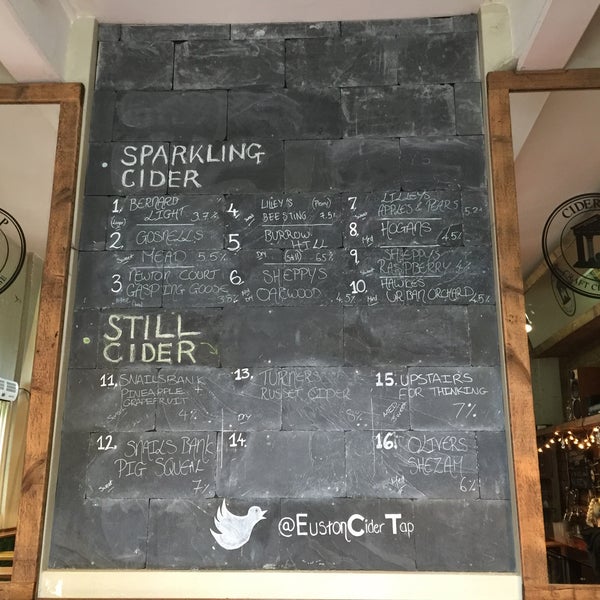 SPARKLING
CIDER
1. BERNARD
LIGHT 3.7%
(Lager)
2 GOSNELLS
MEAD 5.5%
Sweet
3 NEWTON COURT
GASPING GOOSE
4. LILLEY'S (Pear)
BEE STING 7.5%
Sweet
5. BURROW
HILL
DRY 6.5%
6. SHEPPY'S
OAKWOOD 4.5%
7 LILLEYS
APPLES & PEARS 5.2
Sweet
8. HOGANS
Med 4.5%
9 SHEPPYS
RASPBERRY 4%
Sweet
10. HAWKES
URBAN ORCHARD 4.5%
Med
STILL
CIDER
11. SNAILSBANK
PINEAPPLE
GRAPEFRUIT
Sweet 4%
12. SNAILS BANK
PIG SQUEAL
Sweet 7%
13. TURNERS
RUSSET CIDER
DRY 8%
14.
15. UPSTAIRS
FOR THINKING
MED 7%
16. OLIVERS
SHEZAM
6%
@EustonCiderTap
CIDER
CRAFT